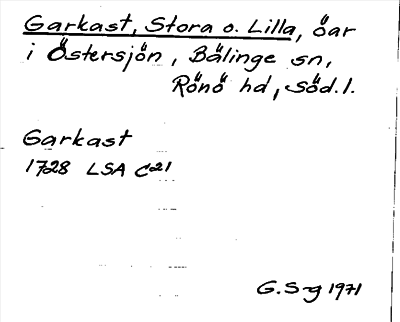 Garkast, Stora o. Lilla, öar
i Östersjön, Bälinge sn,
Rönö hd, Söd.l.
Garkast
1728 LSA C21
G.S-g 1971